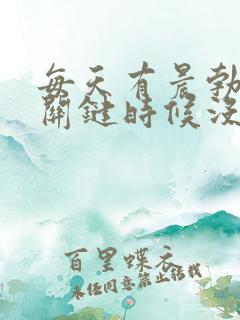 每天有晨勃
關鍵時候沒
百里蝶衣
未经同意禁止转载